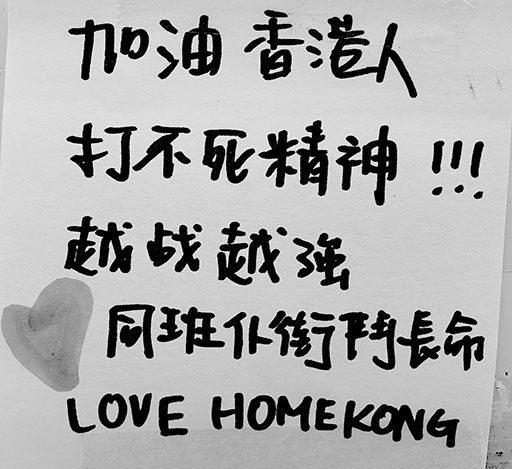 加油香港人
打不死精神 !!!
越战越强
同班仆街鬥長命
LOVE HOMEKONG